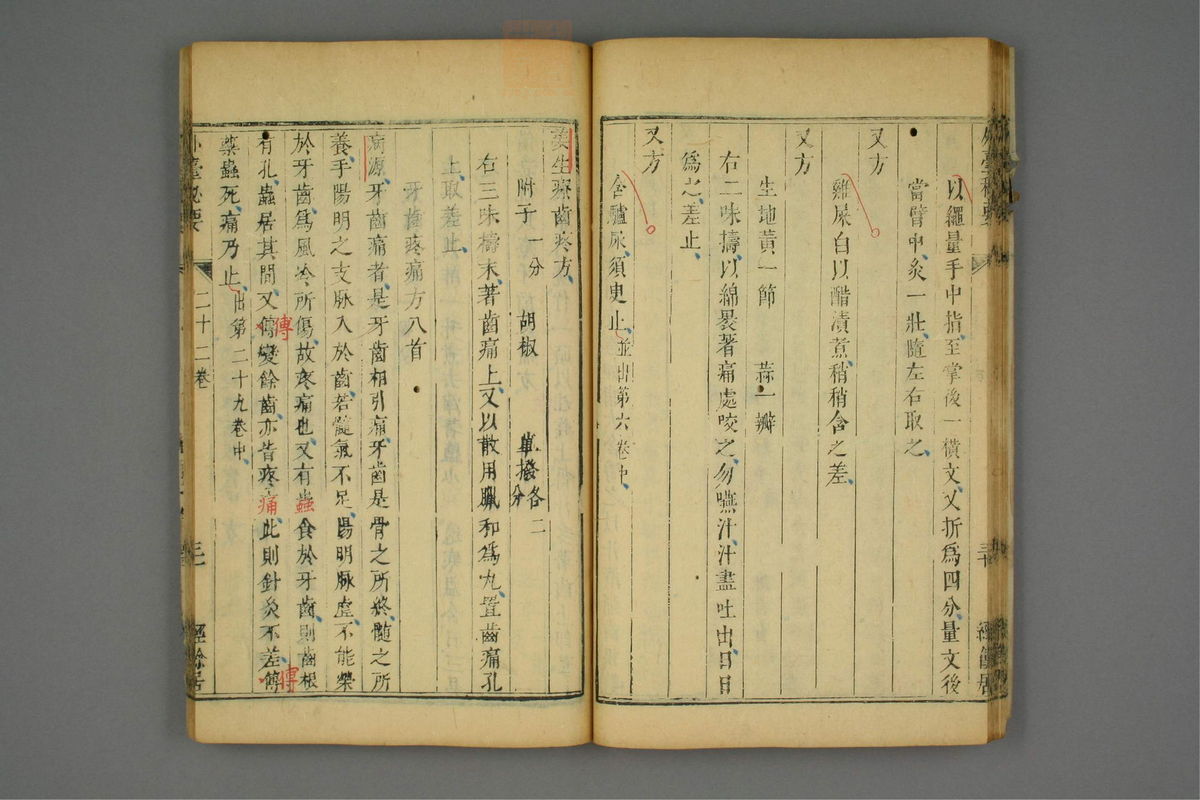 以繩量手中指至掌後一橫文又折為四分量文後
當臂中灸一壯隨左右取之
又方
雞屎白以醋漬煮稍稍含之差
又方
生地黃一節 蒜一瓣
右二味擣以綿裹著痛處咬之勿嚥汁汁盡吐出日日
為之差止
又方
含驢尿須臾止並出第六卷中
姜生療齒疼方
附子一分 胡椒 蓽撥各二分
右三味擣末著齒痛上又以散用臘和為丸置齒痛孔
上取差止
牙齒疼痛方八首
病源牙齒痛者是牙齒相引痛牙齒是骨之所終髓之所
養手陽明之支脉入於齒若髓氣不足陽明脉虛不能榮
於牙齒為風冷所傷故疼痛也又有蟲食於牙齒則齒根
有孔蟲居其間又傳變餘齒亦皆疼痛此則針灸不差傅
藥蟲死痛乃止出第二十九卷中
外臺秘要 二十二卷 經餘居